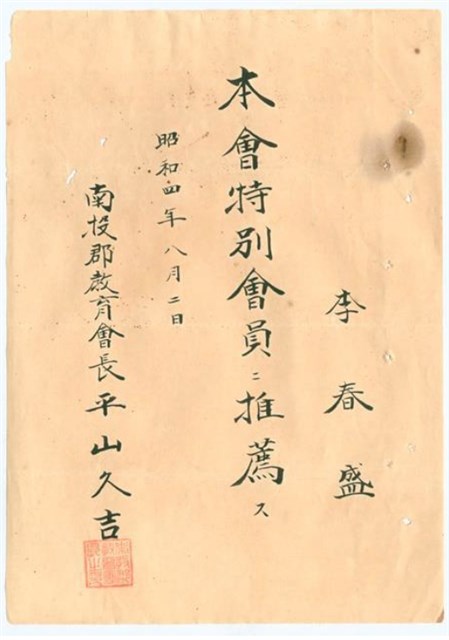 李春盛
本會特別會員ニ推薦ス
昭和四年八月二日
南投郡敎育會長平山久吉